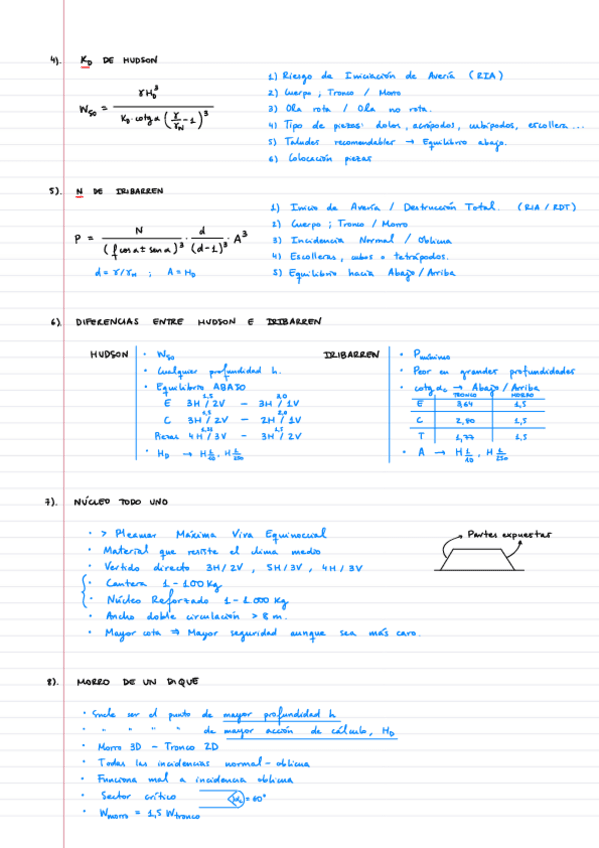 4). KD DE HUDSON
W50 = γHD³ / KD·cotgα (γ/γN - 1)³
1) Riesgo de Iniciación de Avería (RIA)
2) Cuerpo ; Tronco / Morro
3) Ola rota / Ola no rota.
4) Tipo de piezas: dolos, acrópodos, cubípodos, escollera ...
5) Taludes recomendables → Equilibrio abajo.
6) Colocación piezas
5). N DE IRIBARREN
P = N / (f cosα ± senα)³ · d / (d-1)³ · A³
d = γ/γN ; A = HD
1) Inicio de Avería / Destrucción Total. (RIA / RDT)
2) Cuerpo ; Tronco / Morro
3) Incidencia Normal / Oblicua
4) Escolleras, cubos o tetrápodos.
5) Equilibrio hacia Abajo / Arriba
6). DIFERENCIAS ENTRE HUDSON E IRIBARREN
HUDSON
· W50
· Cualquier profundidad h.
· Equilibrio ABAJO
1,5 3,0
E 3H/2V - 3H/1V
1,5 2,0
C 3H/2V - 2H/1V
1,33 1,5
Piezas 4H/3V - 3H/2V
· HD → H 1/10, H 1/250
IRIBARREN
· Pmínimo
· Peor en grandes profundidades
· cotg αc → Abajo / Arriba
TRONCO MORRO
E 3,64 1,5
C 2,80 1,5
T 1,77 1,5
· A → H 1/10, H 1/250
7). NÚCLEO TODO UNO
· > Pleamar Máxima Viva Equinoccial
· Material que resiste el clima medio
· Vertido directo 3H/2V, 5H/3V, 4H/3V
· Cantera 1-100 Kg
· Núcleo Reforzado 1-1000 Kg
· Ancho doble circulación > 8 m.
· Mayor cota ⇒ Mayor seguridad aunque sea más caro.
Partes expuestas
8). MORRO DE UN DIQUE
· Suele ser el punto de mayor profundidad h
· " " " " de mayor acción de cálculo, HD
· Morro 3D - Tronco 2D
· Todas las incidencias normal - oblicua
· Funciona mal a incidencia oblicua
· Sector crítico = 60°
· Wmorro = 1,5 Wtronco